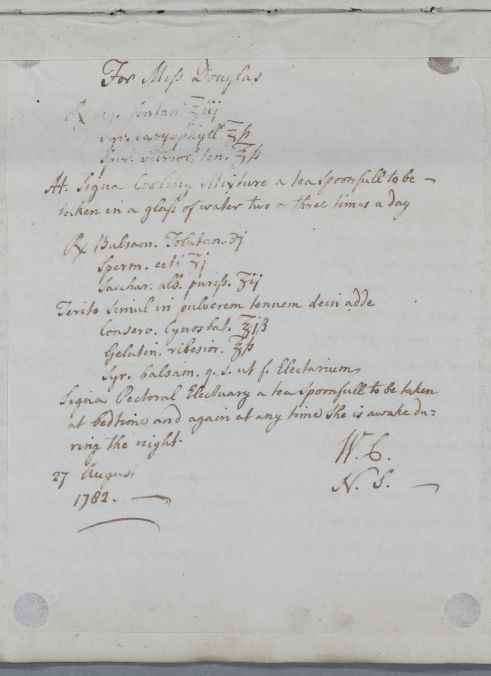 For Miss Douglas
℞ Aq. fontan. ℥iij
Syr. caryophyll. ℥ß
Spir. vitriol. ten. ʒß
M. Signa Cooling Mixture a teaspoonfull to be
taken in a glass of water two or three times a day
℞ Balsam. Tolutan. ℈j
Sperm. ceti ʒj
Sacchar. alb. puriss. ʒij
Terito simul in pulverem tenuem dein adde
Conserv. Cynosbat. ℥jß
Gelatin. ribesior. ℥ß
Syr. balsam. q. s. ut f. Electarium
Signa Pectoral Electuary a teaspoonfull to be taken
at bedtime and again at any time she is awake du=
ring the night.
W. C.
27 August
N. S.
1782.